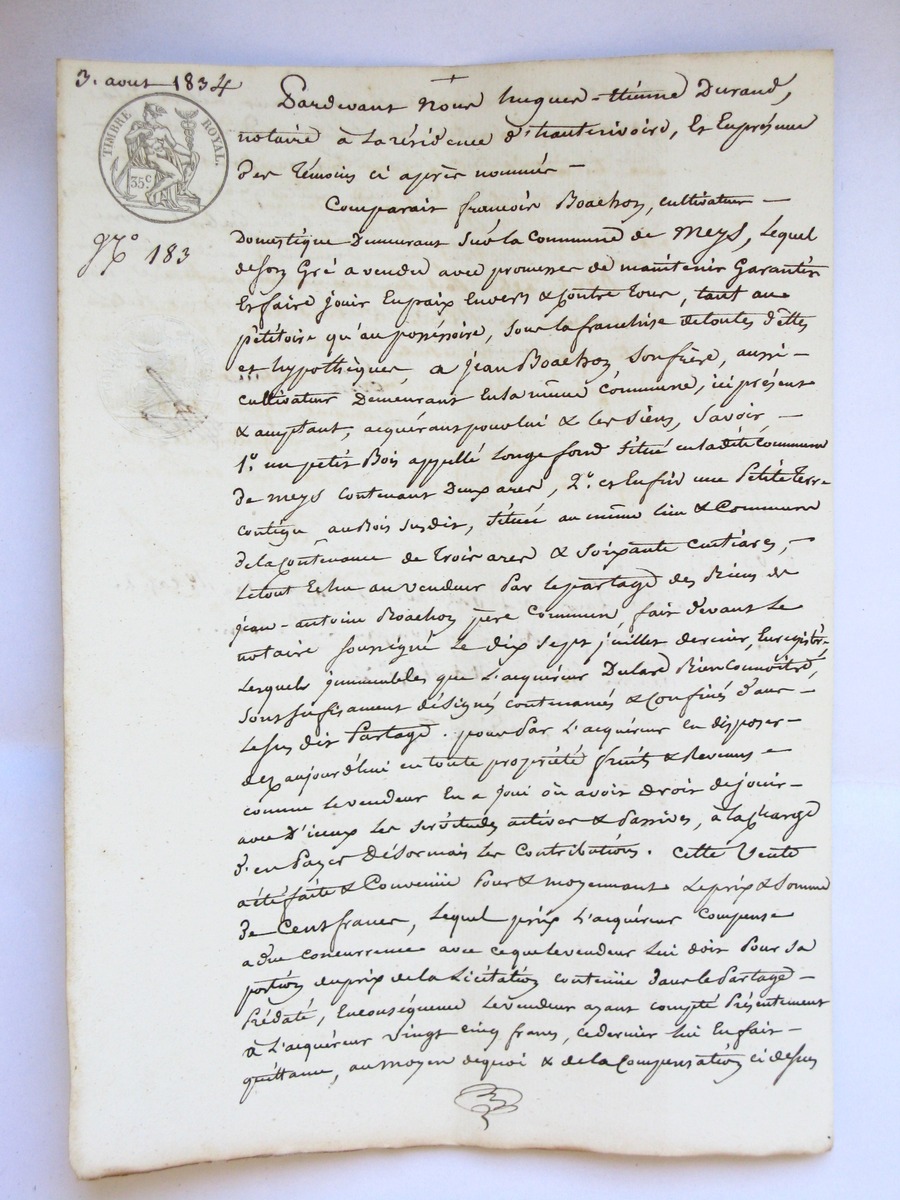 3. aout 1834
TIMBRE ROYAL.
35c
No 183
Pardevant Nous hugues-Etienne Durand,
notaire à la résidence d'hauterivoire, Et En présence
des témoins ci après nommés —
Comparait françois Boachon, cultivateur —
Domestique Demeurant sur la Commune de Meys, Lequel
de son Gré a vendu avec promesse de maintenir Garantir
Et faire jouir En paix Envers & Contre tous, tant au
pétitoire qu'au possessoire, sous la franchise de toutes dettes
et hypothèques, a jean Boachon son frère, aussi —
cultivateur Demeurant En la même Commune, ici présent
& acceptant, acquérant pour lui & les siens, Savoir —
1o. un petit Bois appellé Longe fond Situé en la dite Commune
de Meys contenant deux ares, 2o. et Enfin une Petite terre
contigu au Bois susdit, située au même lieu & Commune
de la Contenance de trois ares & soixante centiares, —
Le tout Echu au vendeur Par le partage des Biens de
jean-antoine Boachon père Commun, fait devant Le
notaire soussigné Le dix sept juillet dernier, Enregistré,
Lesquels jmmeubles que L'acquéreur Déclare Bien Connoître,
sont suffisament désignés contenancés & Confinés dans —
Le sus dit Partage. pour Par L'acquéreur En disposer —
dez aujourd'hui en toute propriété fruits & Revenus —
comme Le vendeur En a joui ou avoir droit de jouir —
avec D'iceux Les servitudes actives & Passives, à la Charge
d'en Payer Désormais Les Contributions. Cette Vente
a été faite & Convenüe Pour & moyennant Le prix & Somme
de Cent francs, Lequel prix L'acquéreur Compense
a due concurrence avec ce que le vendeur Lui doit Pour sa
portion du prix de la Licitation contenüe dans Le Partage —
Prédaté, En conséquence Le vendeur ayant compté Présentement
à L'acquéreur vingt cinq francs, ce dernier Lui En fait —
quittance, au moyen de quoi & de la Compensation ci dessus